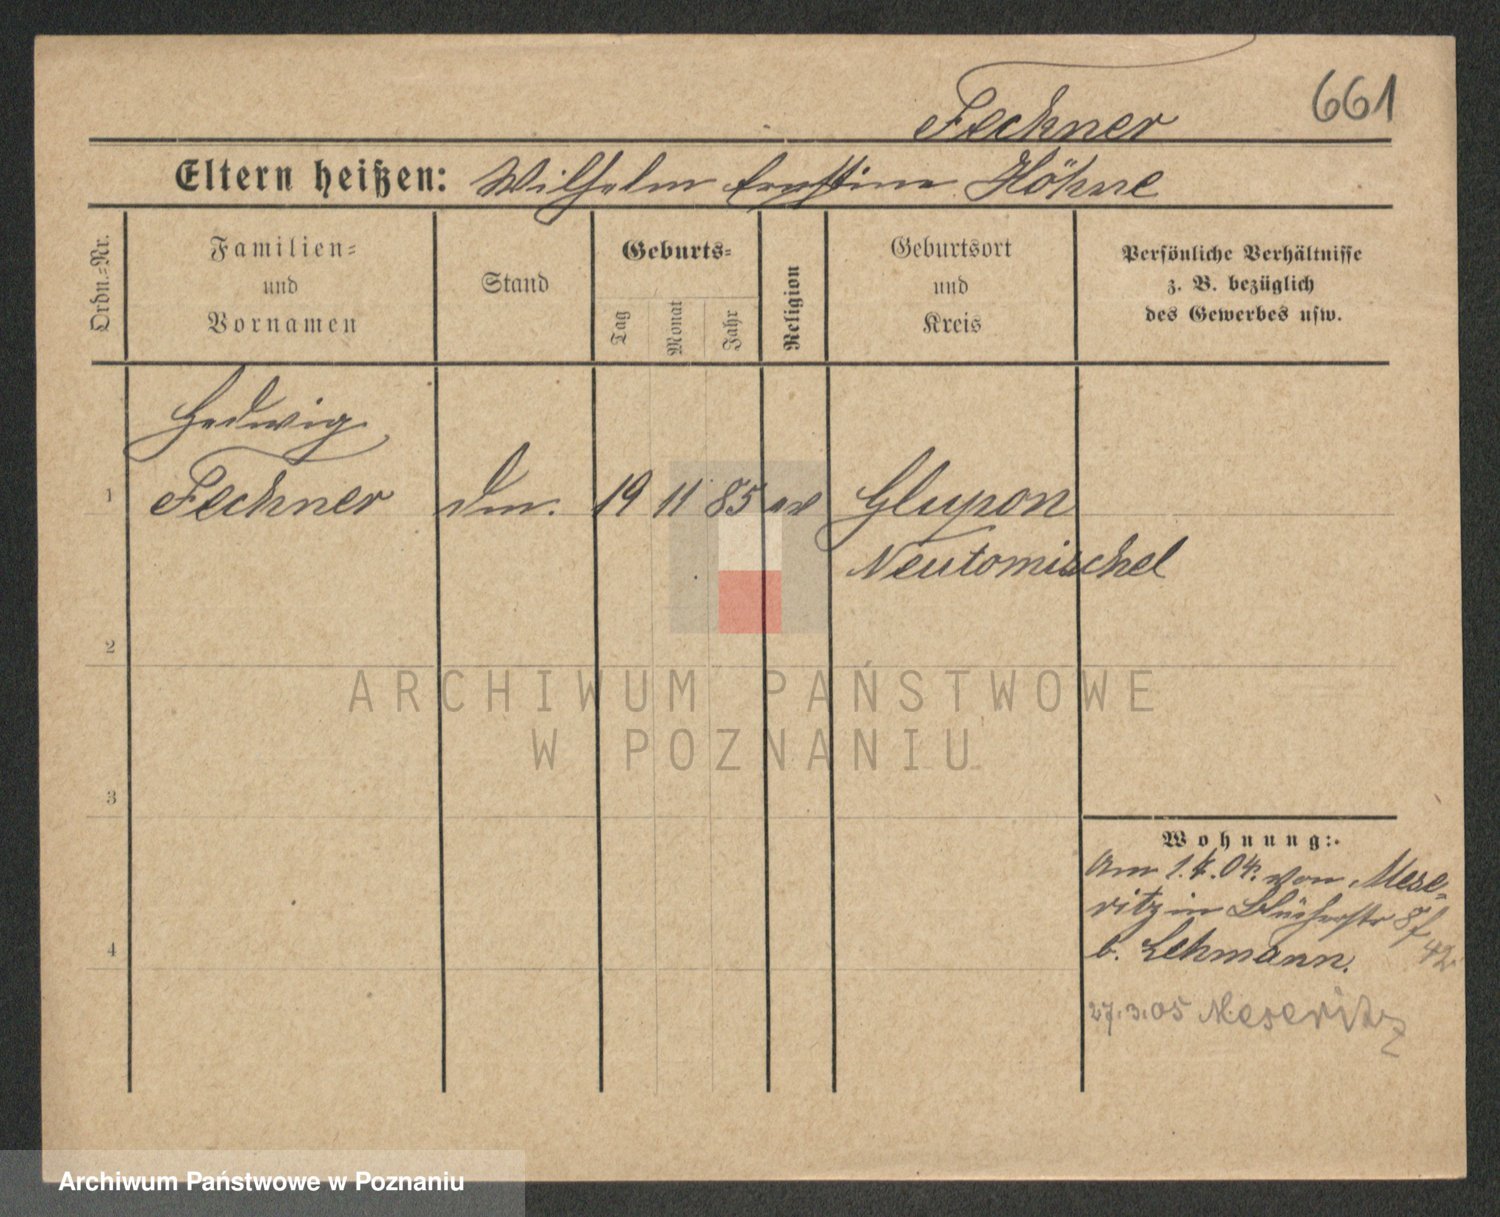 661
Fechner
Eltern heißen: Wilhelm Ernstine Höhne
Ordn.=Nr.
Familien=
und
Vornamen
Stand
Geburts=
Tag
Monat
Jahr
Religion
Geburtsort
und
Kreis
Persönliche Verhältnisse
z. B. bezüglich
des Gewerbes usw.
Hedwig
1 Fechner 19 11 85 ev Glupon
Neutomischel
2
3
4
Wohnung:
Am 1.4.04. von Mese=
ritz in Blücherstr 8
b. Lehmann.
42
27.3.05 Meseritz
ARCHIWUM PAŃSTWOWE
W POZNANIU
Archiwum Państwowe w Poznaniu